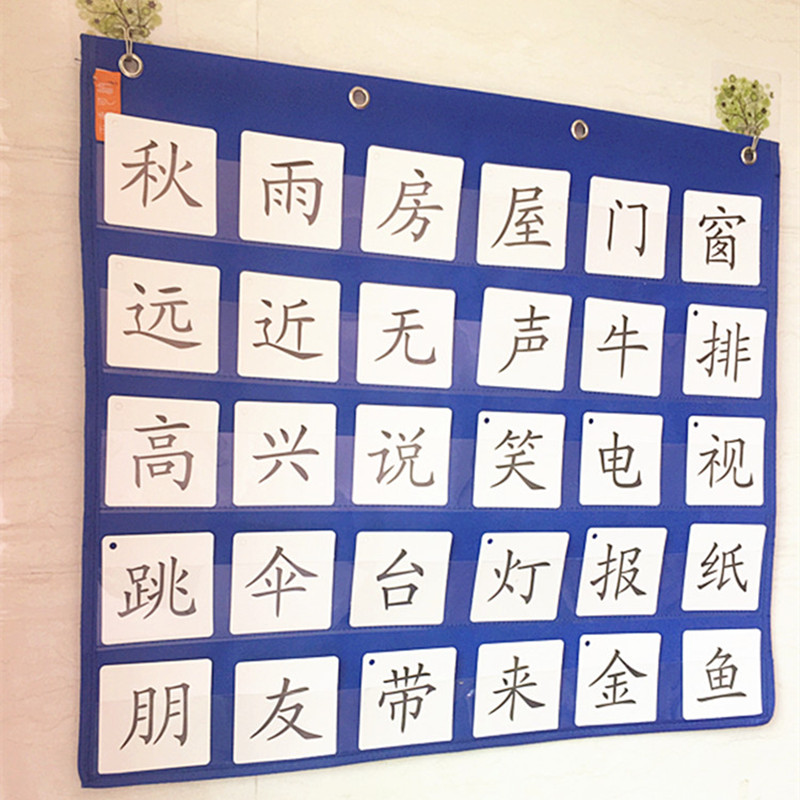 秋 雨 房 屋 门 窗
远 近 无 声 牛 排
高 兴 说 笑 电 视
跳 伞 台 灯 报 纸
朋 友 带 来 金 鱼